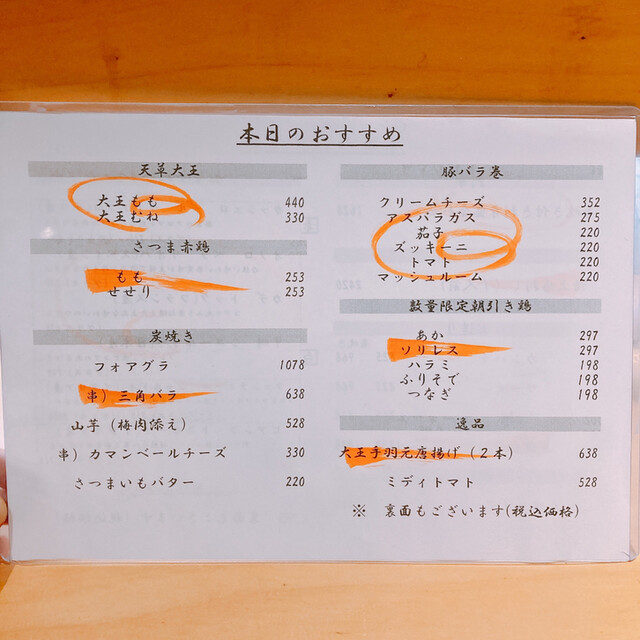 本日のおすすめ
天草大王
大王もも 440
大王むね 330
さつま赤鶏
もも 253
せせり 253
炭焼き
フォアグラ 1078
串）三角バラ 638
山芋（梅肉添え） 528
串）カマンベールチーズ 330
さつまいもバター 220
豚バラ巻
クリームチーズ 352
アスパラガス 275
茄子 220
ズッキーニ 220
トマト 220
マッシュルーム 220
数量限定朝引き鶏
あか 297
ソリレス 297
ハラミ 198
ふりそで 198
つなぎ 198
逸品
大王手羽元唐揚げ（２本） 638
ミディトマト 528
※ 裏面もございます(税込価格)